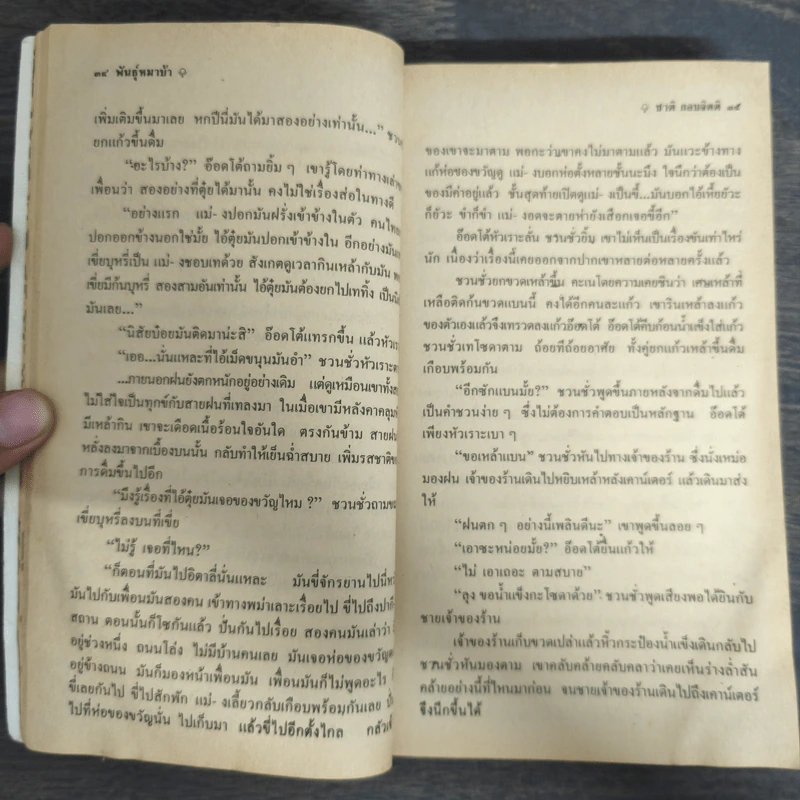 ๓๔ พันธุ์หมาบ้า
เพิ่มเติมขึ้นมาเลย หกปีนี่มันได้มาสองอย่างเท่านั้น...” ชวน
ยกแก้วขึ้นดื่ม
“อะไรบ้าง?” อ๊อดโต้ถามยิ้ม ๆ เขารู้โดยท่าทางเล่า
เพื่อนว่า สองอย่างที่ตุ๋ยได้มานั้น คงไม่ใช่เรื่องส่อในทางดี
“อย่างแรก แม่-งปอกมันฝรั่งเข้าข้างในตัว คนไทย
ปอกออกข้างนอกใช่มั้ย ไอ้ตุ๋ยมันปอกเข้าข้างใน อีกอย่างมัน
เขี่ยบุหรี่ แม่-งชอบเทด้วย สังเกตดูเวลากินเหล้ากับมัน
เขี่ยมีก้นบุหรี่ สองสามอันเท่านั้น ไอ้ตุ๋ยมันต้องยกไปเททิ้ง เป็น
มันเลย...”
“นิสัยบ๋อยมันติดมาน่ะสิ” อ๊อดโต้แทรกขึ้น แล้วหัว
“เออ...นั่นแหละที่ไอ้เม็ดขนุนมันอำ” ชวนชั่วหัวเราะ
...ภายนอกฝนยังตกหนักอยู่อย่างเดิม แต่ดูเหมือนเขาทั้ง
ไม่ใส่ใจเป็นทุกข์กับสายฝนที่เทลงมา ในเมื่อเขามีหลังคาคลุม
มีเหล้ากิน เขาจะเดือดเนื้อร้อนใจอันใด ตรงกันข้าม สายฝน
หลั่งลงมาจากเบื้องบนนั้น กลับทำให้เย็นฉ่ำสบาย เพิ่มรสชาติ
การดื่มขึ้นไปอีก
“มึงรู้เรื่องที่ไอ้ตุ๋ยมันเจอของขวัญไหม ?” ชวนชั่วถาม
เขี่ยบุหรี่ลงบนที่เขี่ย
“ไม่รู้ เจอที่ไหน?”
“ก็ตอนที่มันไปอิตาลีนั่นแหละ มันขี่จักรยานไปนี่
มันไปกับเพื่อนมันสองคน เข้าทางพม่าเลาะเรื่อยไป ขี่ไปถึงปา
สถาน ตอนนั้นก็โซกันแล้ว ปั่นกันไปเรื่อย สองคนมันเล่าว่า
อยู่ช่วงหนึ่ง ถนนโล่ง ไม่มีบ้านคนเลย มันเจอห่อของขวัญ
อยู่ข้างถนน มันก็มองหน้าเพื่อนมัน เพื่อนมันก็ไม่พูดอะไร
ขี่เลยกันไป ขี่ไปสักพัก แม่-งเลี้ยวกลับเกือบพร้อมกันเลย
ไปที่ห่อของขวัญนั่น ไปเก็บมา แล้วขี่ไปอีกตั้งไกล กลัว
ชาติ กอบจิตติ ๓๕
ของเขาจะมาตาม พอกะว่าเขาคงไม่มาตามแล้ว มันแวะข้างทาง
แก้ห่อของขวัญดู แม่-งบอกห่อตั้งหลายชั้นนะมึง ใจนึกว่าต้องเป็น
ของมีค่าอยู่แล้ว ชั้นสุดท้ายเปิดดูแม่-งเป็นขี้...มันบอกไอ้เหี้ยฮ้วะ
ก็ฮ้วะ ขำก็ขำ แม่-งอดจะตายห่ายังเสือกเจอขี้อีก”
อ๊อดโต้หัวเราะลั่น ชวนชั่วยิ้ม เขาไม่เห็นเป็นเรื่องขันเท่าไหร่
นัก เนื่องว่าเรื่องนี้เคยออกจากปากเขาหลายต่อหลายครั้งแล้ว
ชวนชั่วยกขวดเหล้าขึ้น คะเนโดยความเคยชินว่า เศษเหล้าที่
เหลือติดก้นขวดแบนนี้ คงได้อีกคนละแก้ว เขารินเหล้าลงแก้ว
ของตัวเองแล้วจึงเทรวดลงแก้วอ๊อดโต้ อ๊อดโต้คีบก้อนน้ำแข็งใส่แก้ว
ชวนชั่วเทโซดาตาม ถ้อยทีถ้อยอาศัย ทั้งคู่ยกแก้วเหล้าขึ้นดื่ม
เกือบพร้อมกัน
“อีกซักแบนมั้ย?” ชวนชั่วพูดขึ้นภายหลังจากดื่มไปแล้ว
เป็นคำชวนง่าย ๆ ซึ่งไม่ต้องการคำตอบเป็นหลักฐาน อ๊อดโต้
เพียงหัวเราะเบา ๆ
“ขอเหล้าแบน” ชวนชั่วหันไปทางเจ้าของร้าน ซึ่งนั่งเหม่อ
มองฝน เจ้าของร้านเดินไปหยิบเหล้าหลังเคาน์เตอร์ แล้วเดินมาส่ง
ให้
“ฝนตก ๆ อย่างนี้เพลินดีนะ” เขาพูดขึ้นลอย ๆ
“เอาซะหน่อยมั้ย?” อ๊อดโต้ยื่นแก้วให้
“ไม่ เอาเถอะ ตามสบาย”
“ลุง ขอน้ำแข็งกะโซดาด้วย” ชวนชั่วพูดเสียงพอได้ยินกับ
ชายเจ้าของร้าน
เจ้าของร้านเก็บขวดเปล่าแล้วหิ้วกระป๋องน้ำแข็งเดินกลับไป
ชวนชั่วหันมองตาม เขาคลับคล้ายคลับคลาว่าเคยเห็นร่างล่ำสัน
คล้ายอย่างนี้ที่ไหนมาก่อน จนชายเจ้าของร้านเดินไปถึงเคาน์เตอร์
จึงนึกขึ้นได้